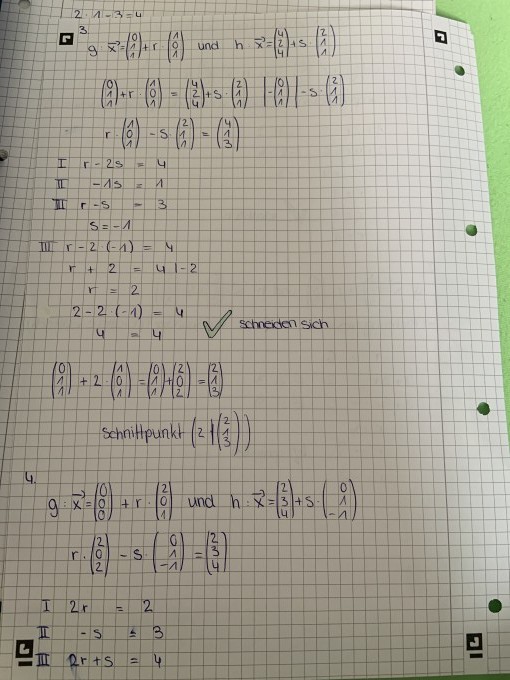 2 · 1 - 3 = 4
3. g: x⃗ = (0 1 1) + r · (1 0 1) und h: x⃗ = (4 2 4) + s · (2 1 1)
(0 1 1) + r · (1 0 1) = (4 2 4) + s · (2 1 1) | - (0 1 1) | - s · (2 1 1)
r · (1 0 1) - s · (2 1 1) = (4 1 3)
I r - 2s = 4
II -1s = 1
III r - s = 3
s = -1
III r - 2 · (-1) = 4
r + 2 = 4 | -2
r = 2
2 - 2 · (-1) = 4
4 = 4 ✓ schneiden sich
(0 1 1) + 2 · (1 0 1) = (0 1 1) + (2 0 2) = (2 1 3)
Schnittpunkt (2 | (2 1 3))
4.
g: x⃗ = (0 0 0) + r · (2 0 1) und h: x⃗ = (2 3 4) + s · (0 1 -1)
r · (2 0 2) - s · (0 1 -1) = (2 3 4)
I 2r = 2
II -s = 3
III 2r + s = 4